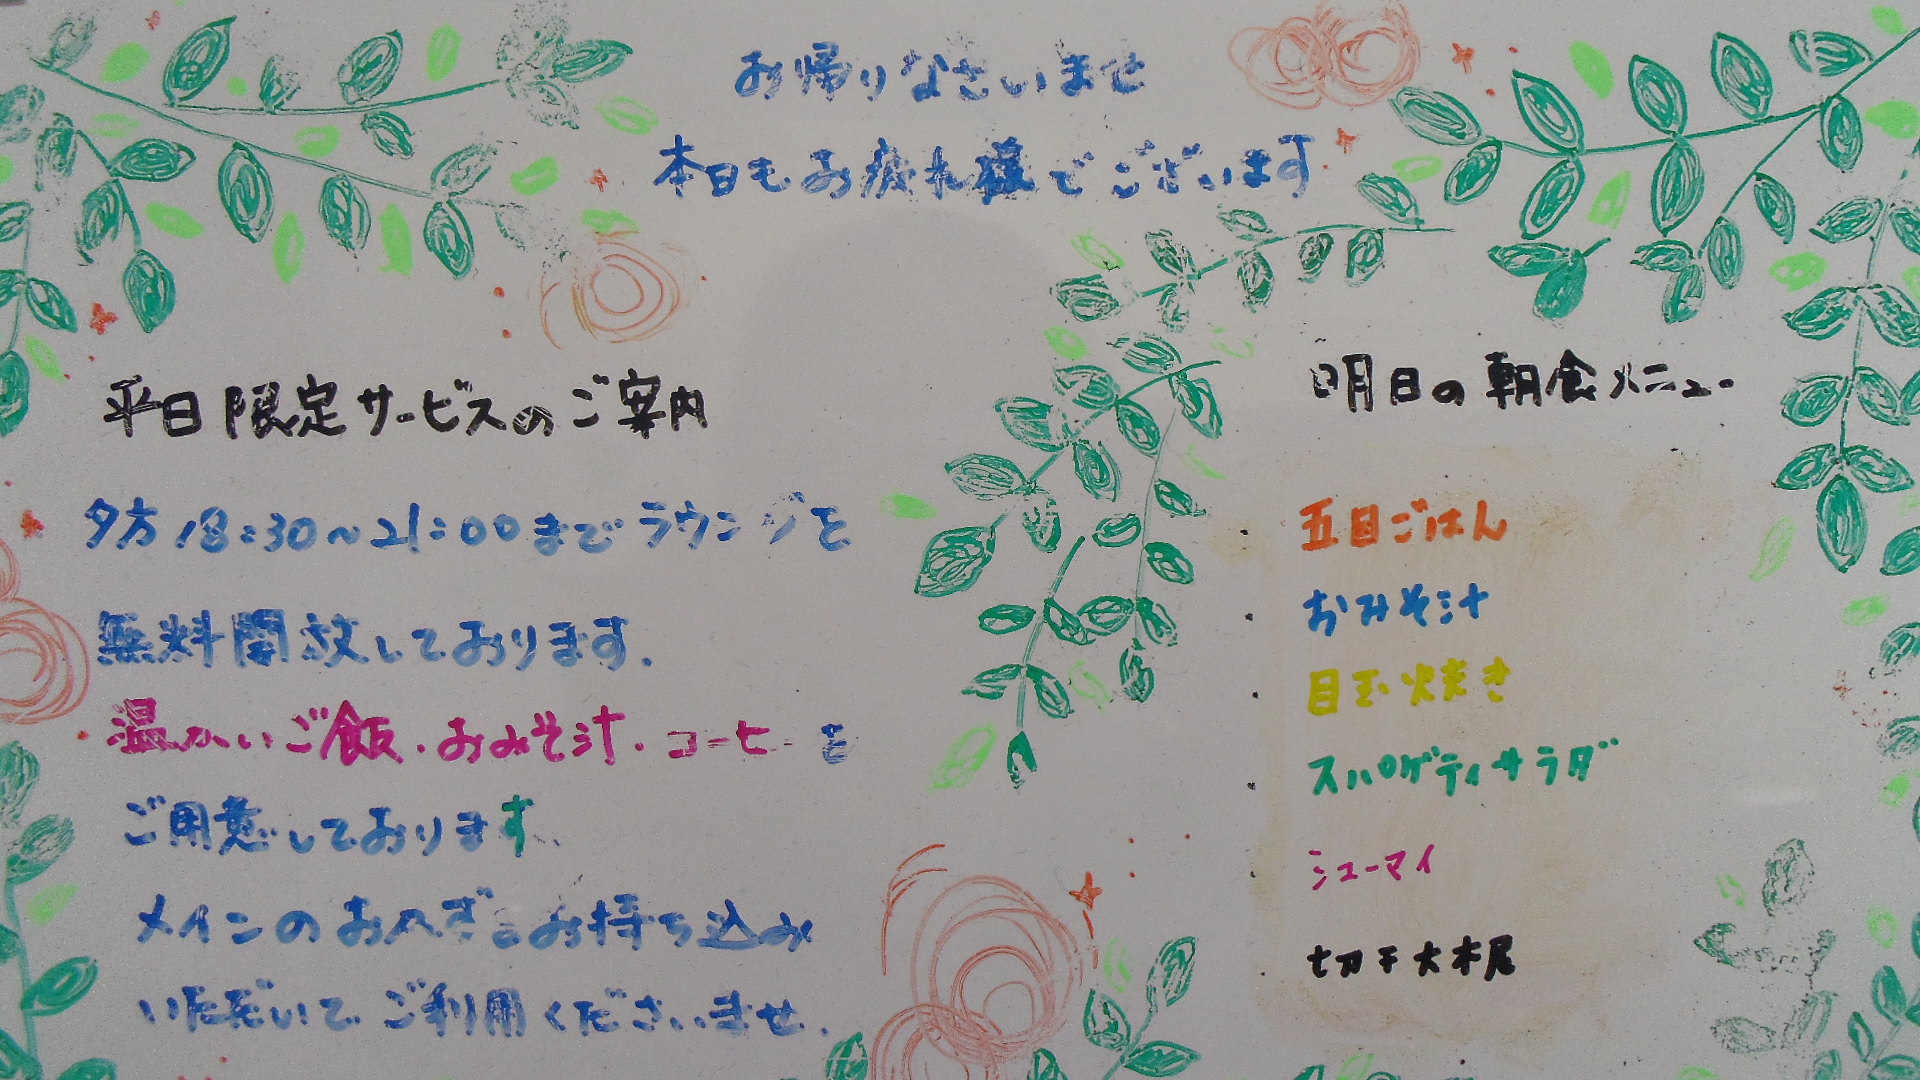 お帰りなさいませ
本日もお疲れ様でございます
平日限定サービスのご案内
夕方18:30~21:00までラウンジを
無料開放しております.
温かいご飯・おみそ汁・コーヒーを
ご用意しております、
メインのおかずはお持ち込み
いただいてご利用くださいませ.
明日の朝食メニュー
五目ごはん
おみそ汁
目玉焼き
スパゲティサラダ
シューマイ
切干大根